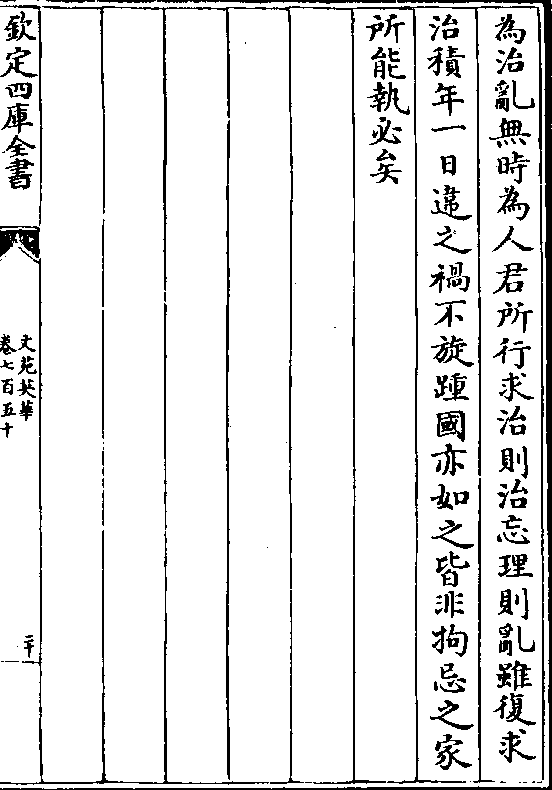 為治亂無時為人君所行求治則治忘理則亂雖復求
治積年一日違之禍不旋踵國亦如之皆非拘忌之家
所能執必矣
欽定四庫全書
文苑英華
卷七百五十
二十